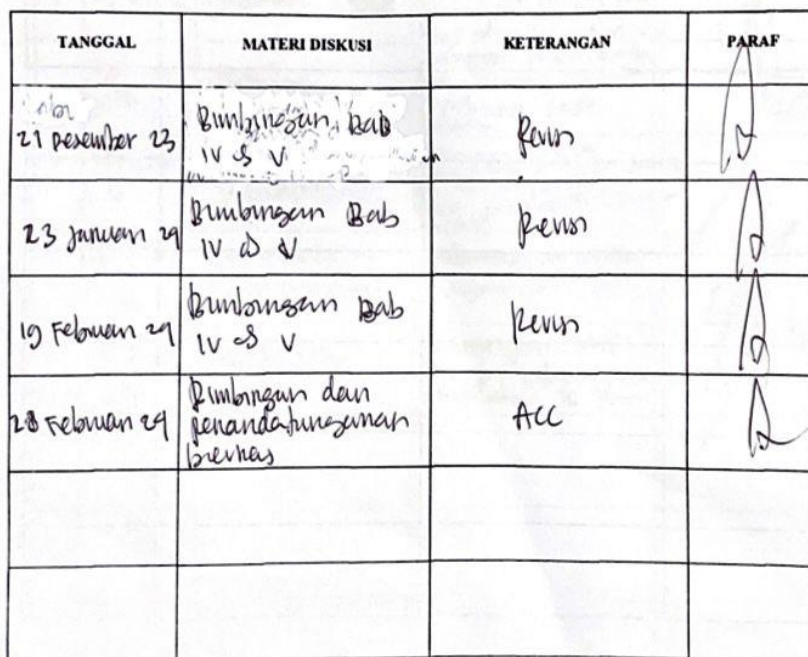 TANGGAL MATERI DISKUSI KETERANGAN PARAF
21 Desember 23 Bimbingan Bab Revisi
IV & V
23 Januari 24 Bimbingan Bab Revisi
IV & V
19 Februari 24 Bimbingan Bab Revisi
IV & V
28 Februari 24 Bimbingan dan ACC
penandatanganan
berkas